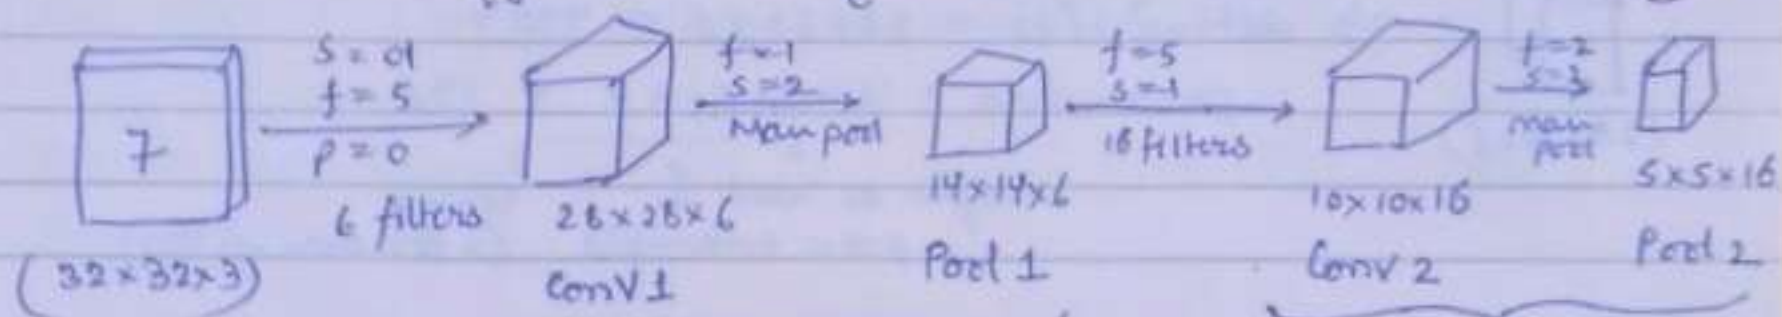 7
(32x32x3)
S = 01
f = 5
p = 0
6 filters
28x28x6
Conv 1
f = 1
s = 2
Max pool
14x14x6
Pool 1
f = 5
s = 1
16 filters
10x10x16
Conv 2
f = 2
s = 3
max
pool
5x5x16
Pool 2